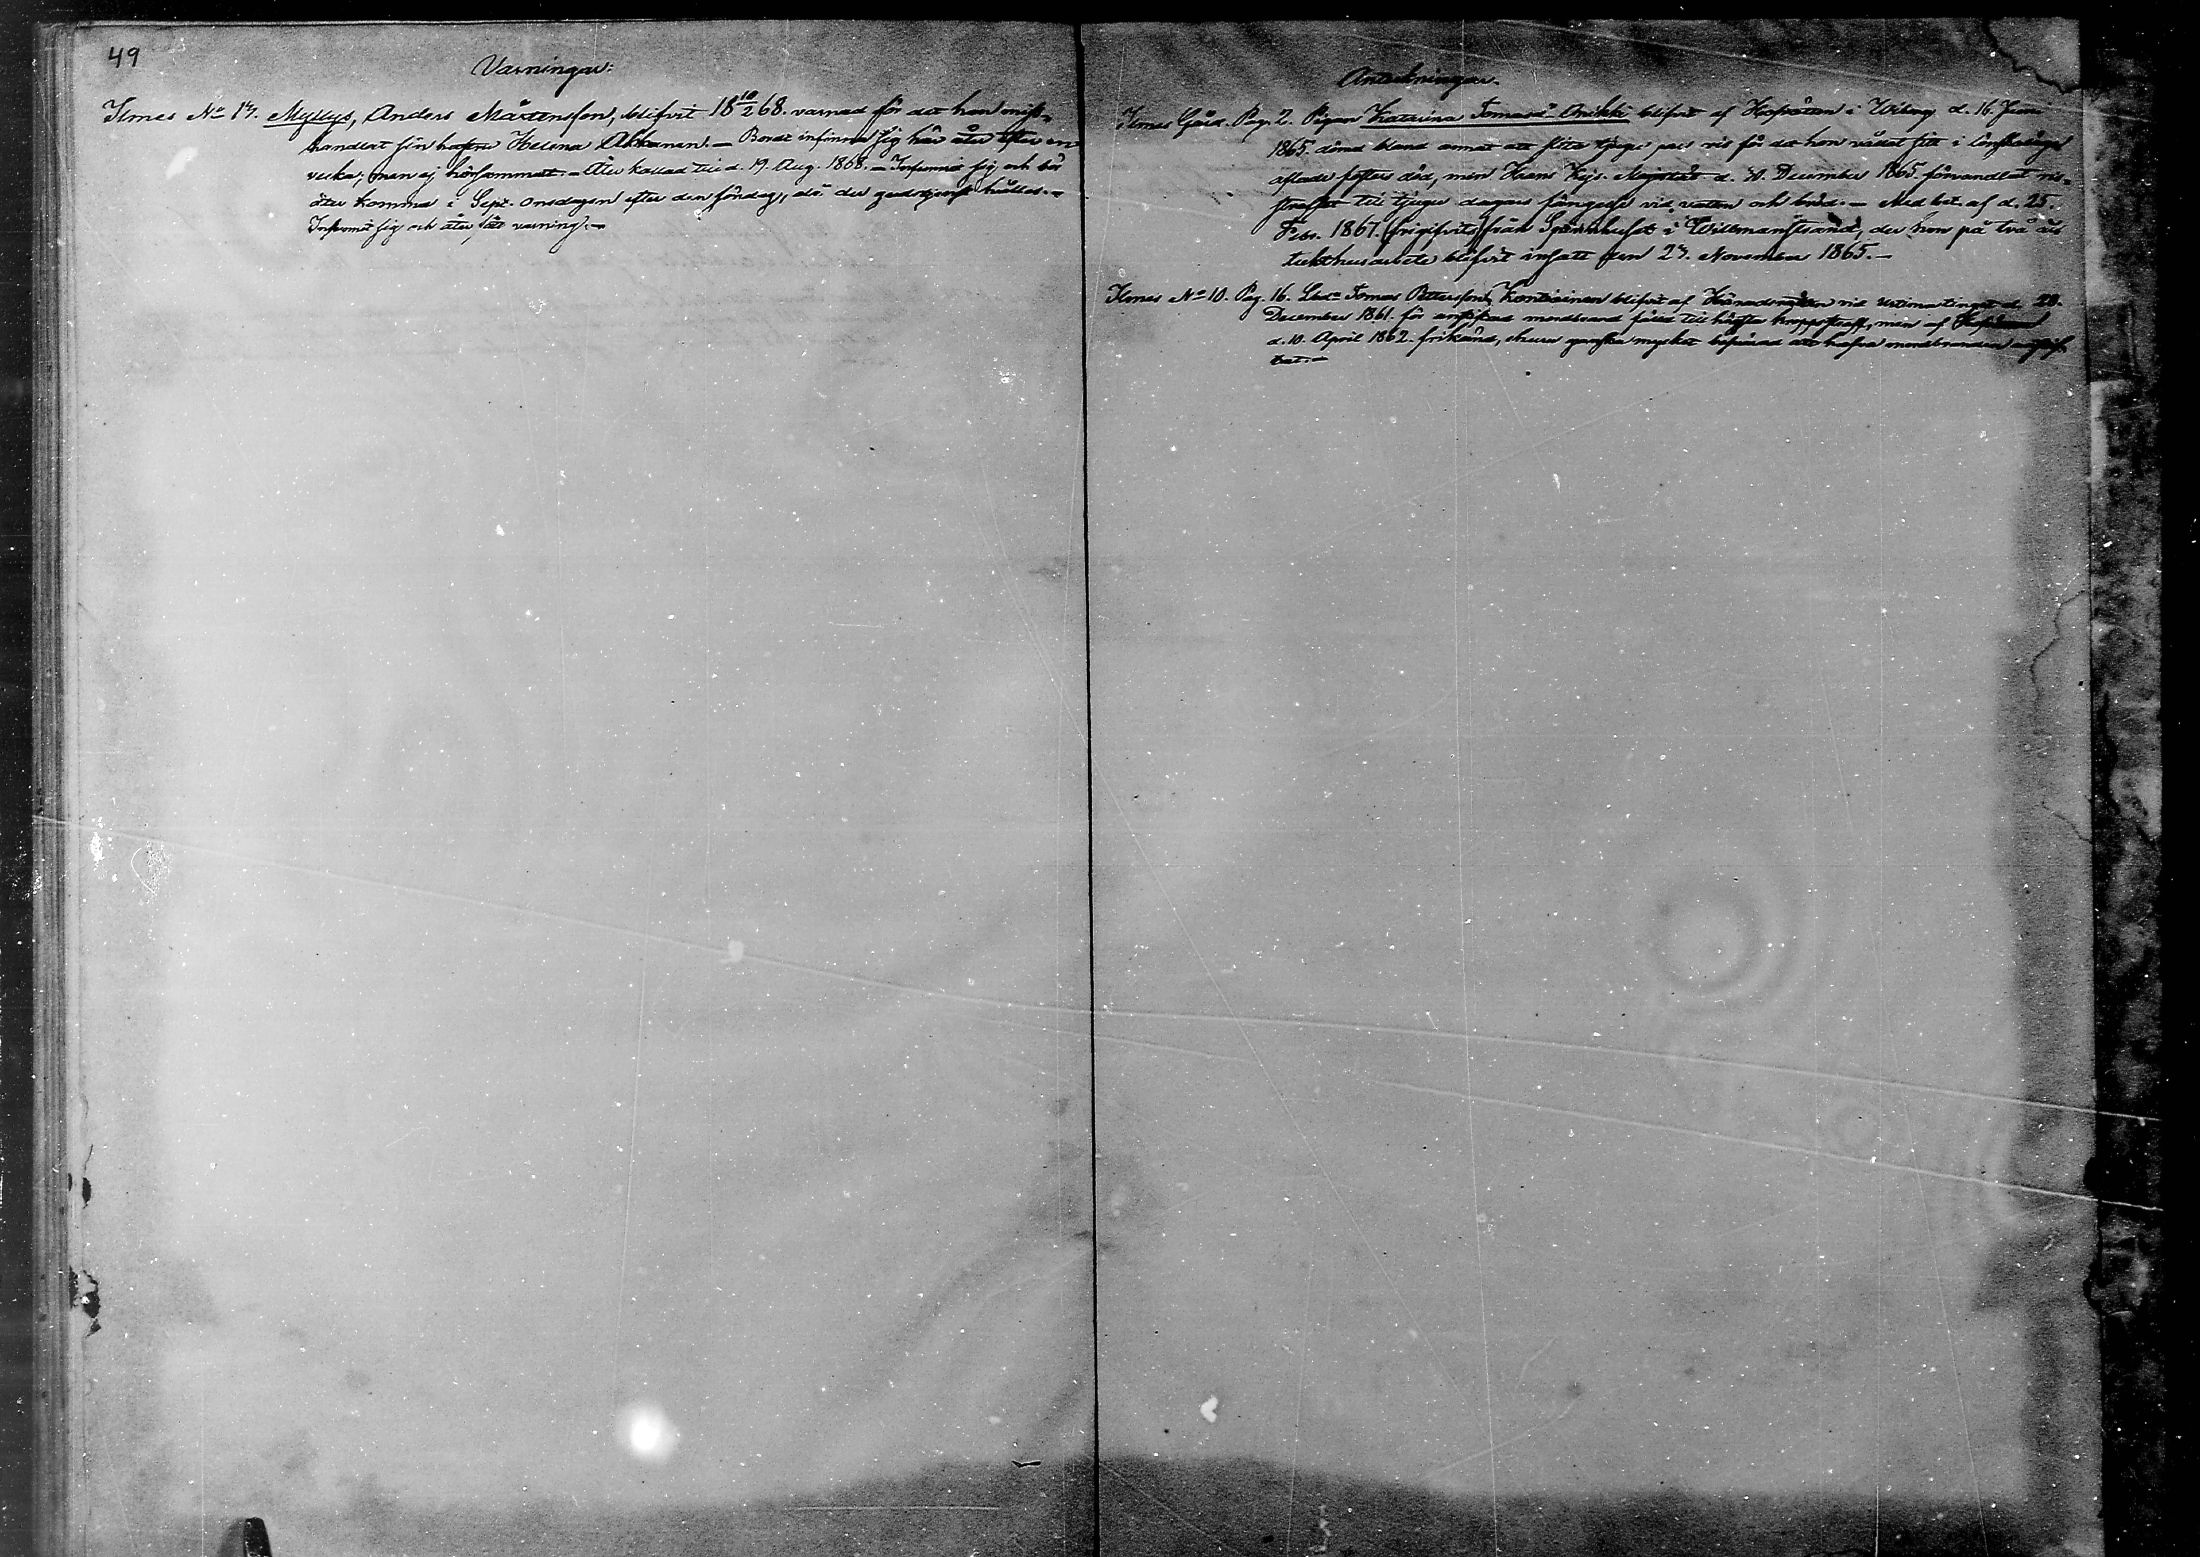 49
Varningar:
Ilmes No 17. Myllys, Anders Mårtensson, blifvit 18 10/2 68. varnad för det han miss-
handlat sin hustru Helena Ahtianen. — Borde infinna sig här åter efter en
vecka; men ej hörsammat. — Åter kallad till d. 19. Aug. 1868. — Infunnit sig och bör
åter komma i Sept. onsdagen efter den söndag, då der gudstjenst hålles. —
Infunnit sig och åter fått varning. —
Anteckningar.
Ilmes Gård. Pag. 2. Pigan Katarina Tomasdr Onikki blifvit af Hofrätten i Wiborg d. 16 Juni
1865. dömd bland annat att slita tjugo par ris för det hon vållat sitt i lönskaläge
aflade fosters död, men Hans Kejs. Majestät d. December 1865 förvandlat ris-
straffet till tjugo dagars fängelse vid vatten och bröd. — Med bet. af d. 25.
Febr. 1867. frigifvits från Spinnhuset i Willmanstrand, der hon på två års
tukthusarbete blifvit insatt den 27. November 1865. —
Ilmes No 10. Pag. 16. Tomas Pettersson blifvit af Häradsrätten vid urtima tinget d. 28.
December 1861. för anstiftad mordbrand fälld till högsta kroppsstraff, men af Hofrätten
d. 10. April 1862. frikänd, ehuru ganska mycket besvärad att hafva mordbranden anstif-
tat. —